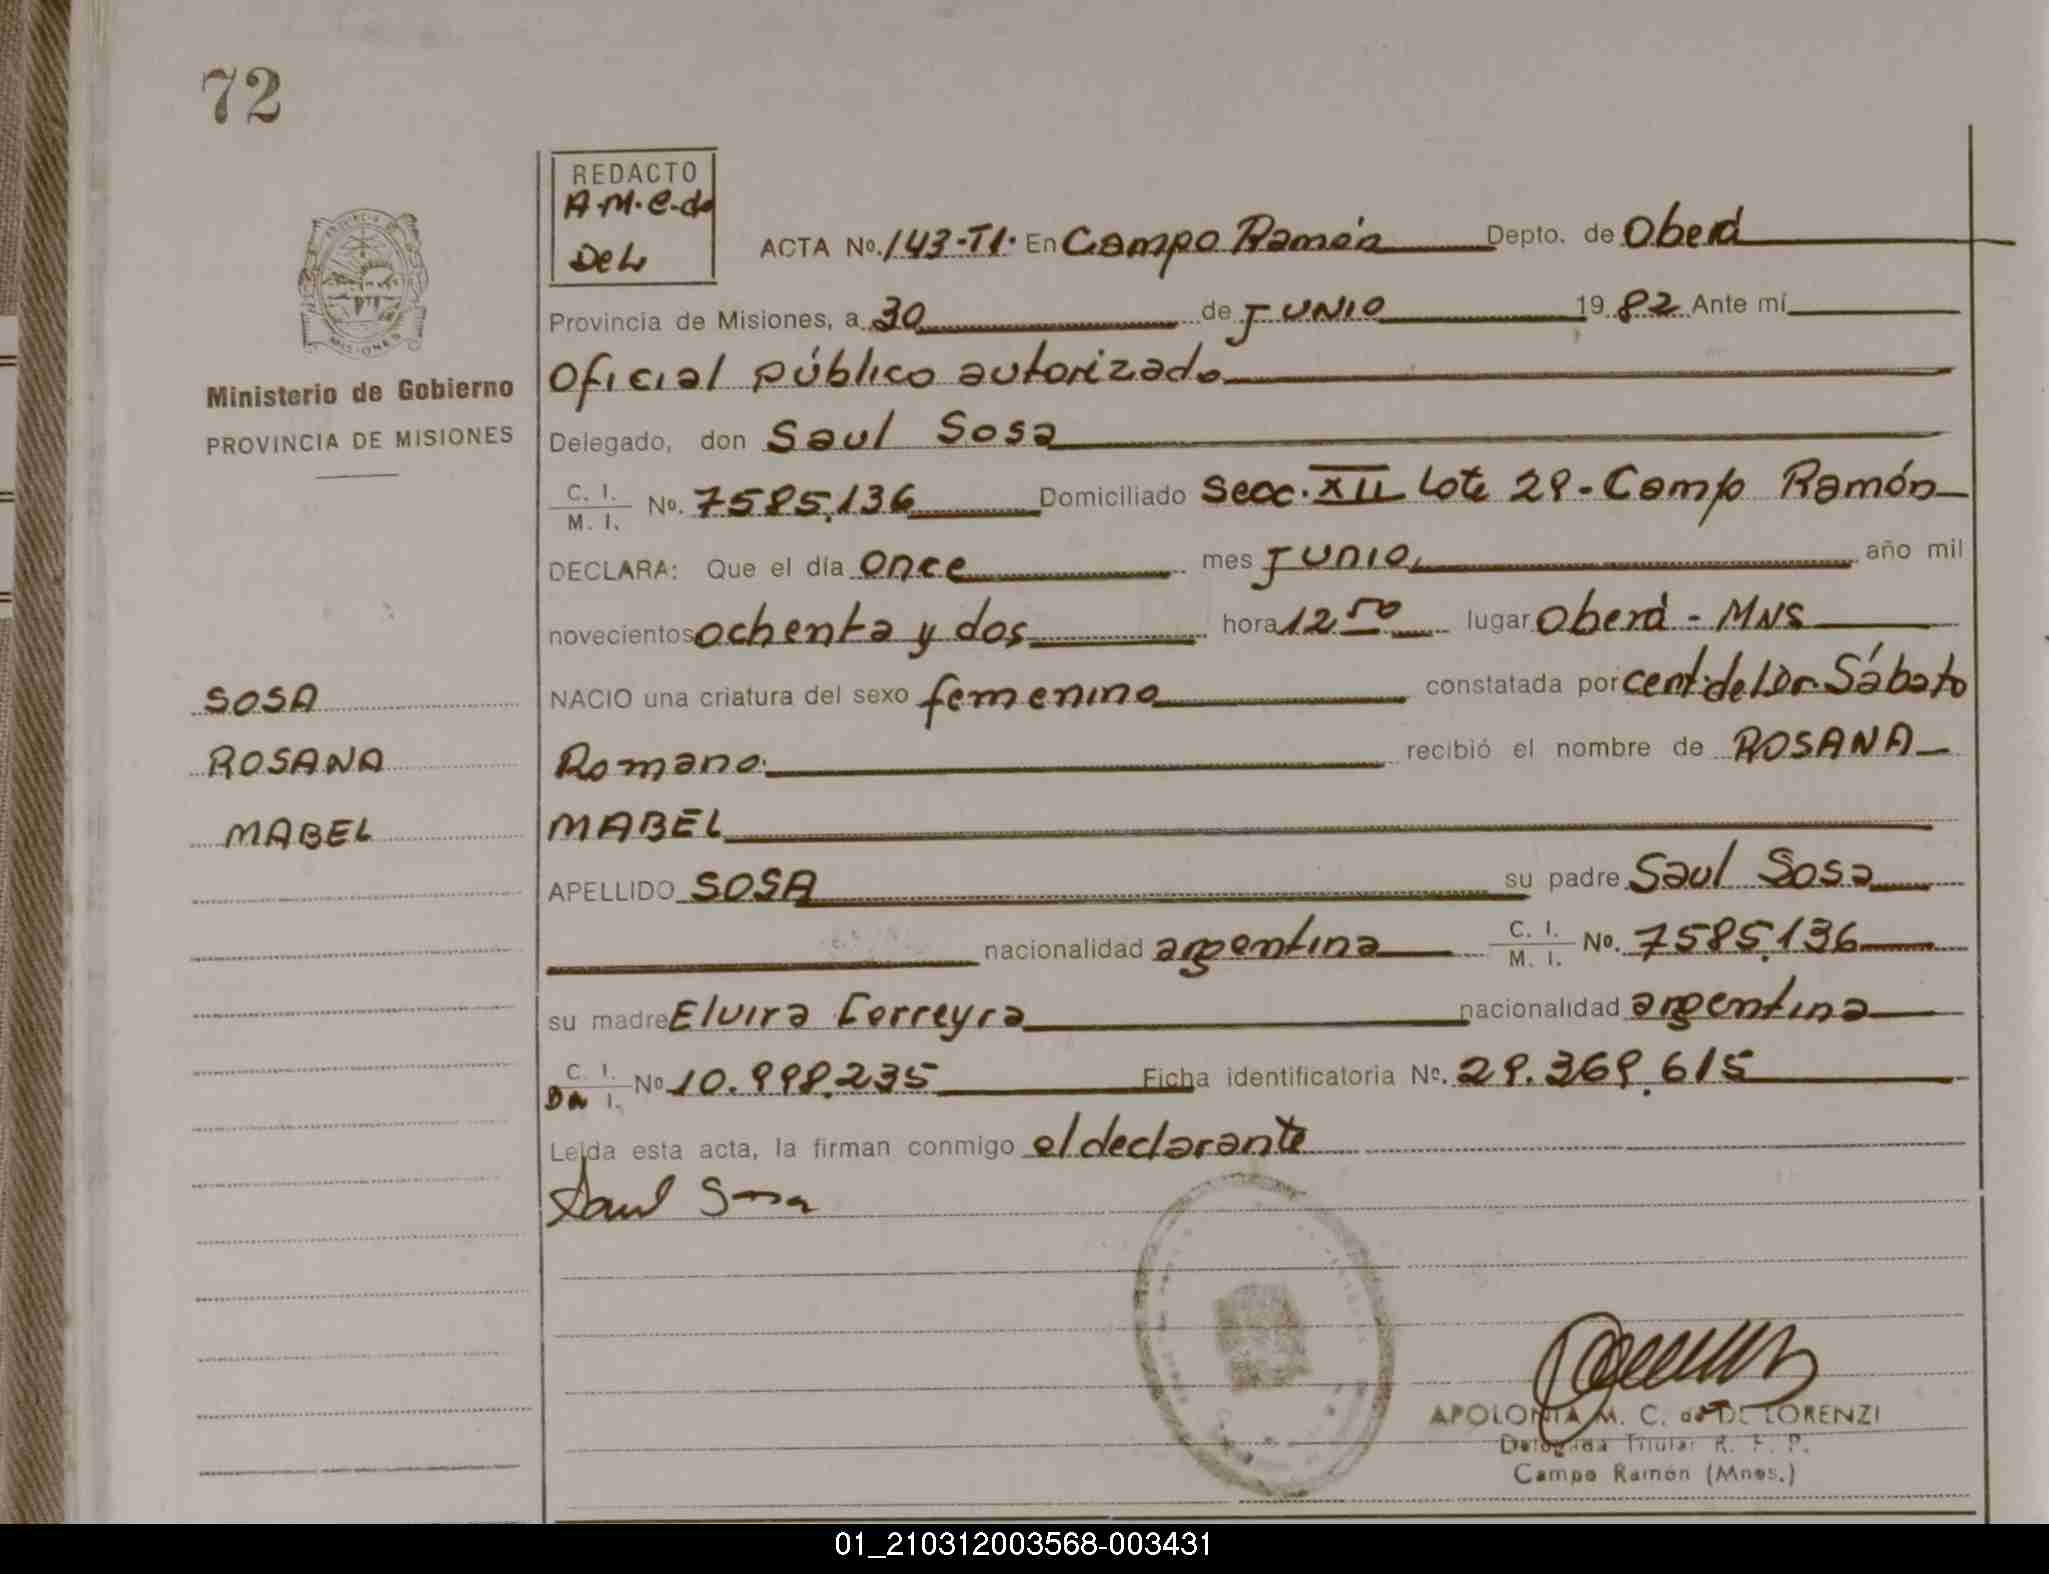 72
REDACTO
A.M.C. de
DeL
ACTA No. 143-T1. En Campo Ramón Depto. de Oberá
Provincia de Misiones, a 30 de JUNIO 1982 Ante mí
Oficial público autorizado
Delegado, don Saul Sosa
C. I.
M. I. No. 7585.136 Domiciliado Secc. XII Lote 29 - Camp Ramón
DECLARA: Que el día once mes JUNIO año mil
novecientos ochenta y dos hora 12 50 lugar Oberá - MNS
NACIO una criatura del sexo femenino constatada por cert. del Dr. Sábato
Romano. recibió el nombre de ROSANA
MABEL
APELLIDO SOSA su padre Saul Sosa
nacionalidad argentina C. I. M. I. No. 7585.136
su madre Elvira Ferreyra nacionalidad argentina
C. I. DN I. No 10.998.235 Ficha identificatoria No. 29.369.615
Leida esta acta, la firman conmigo el declarante
Saul Sosa
PROVINCIA
MISIONES
Ministerio de Gobierno
PROVINCIA DE MISIONES
SOSA
ROSANA
MABEL
APOLONIA M. C. de DE LORENZI
Delegada Titular R. P. P.
Campo Ramón (Mnes.)
01_210312003568-003431